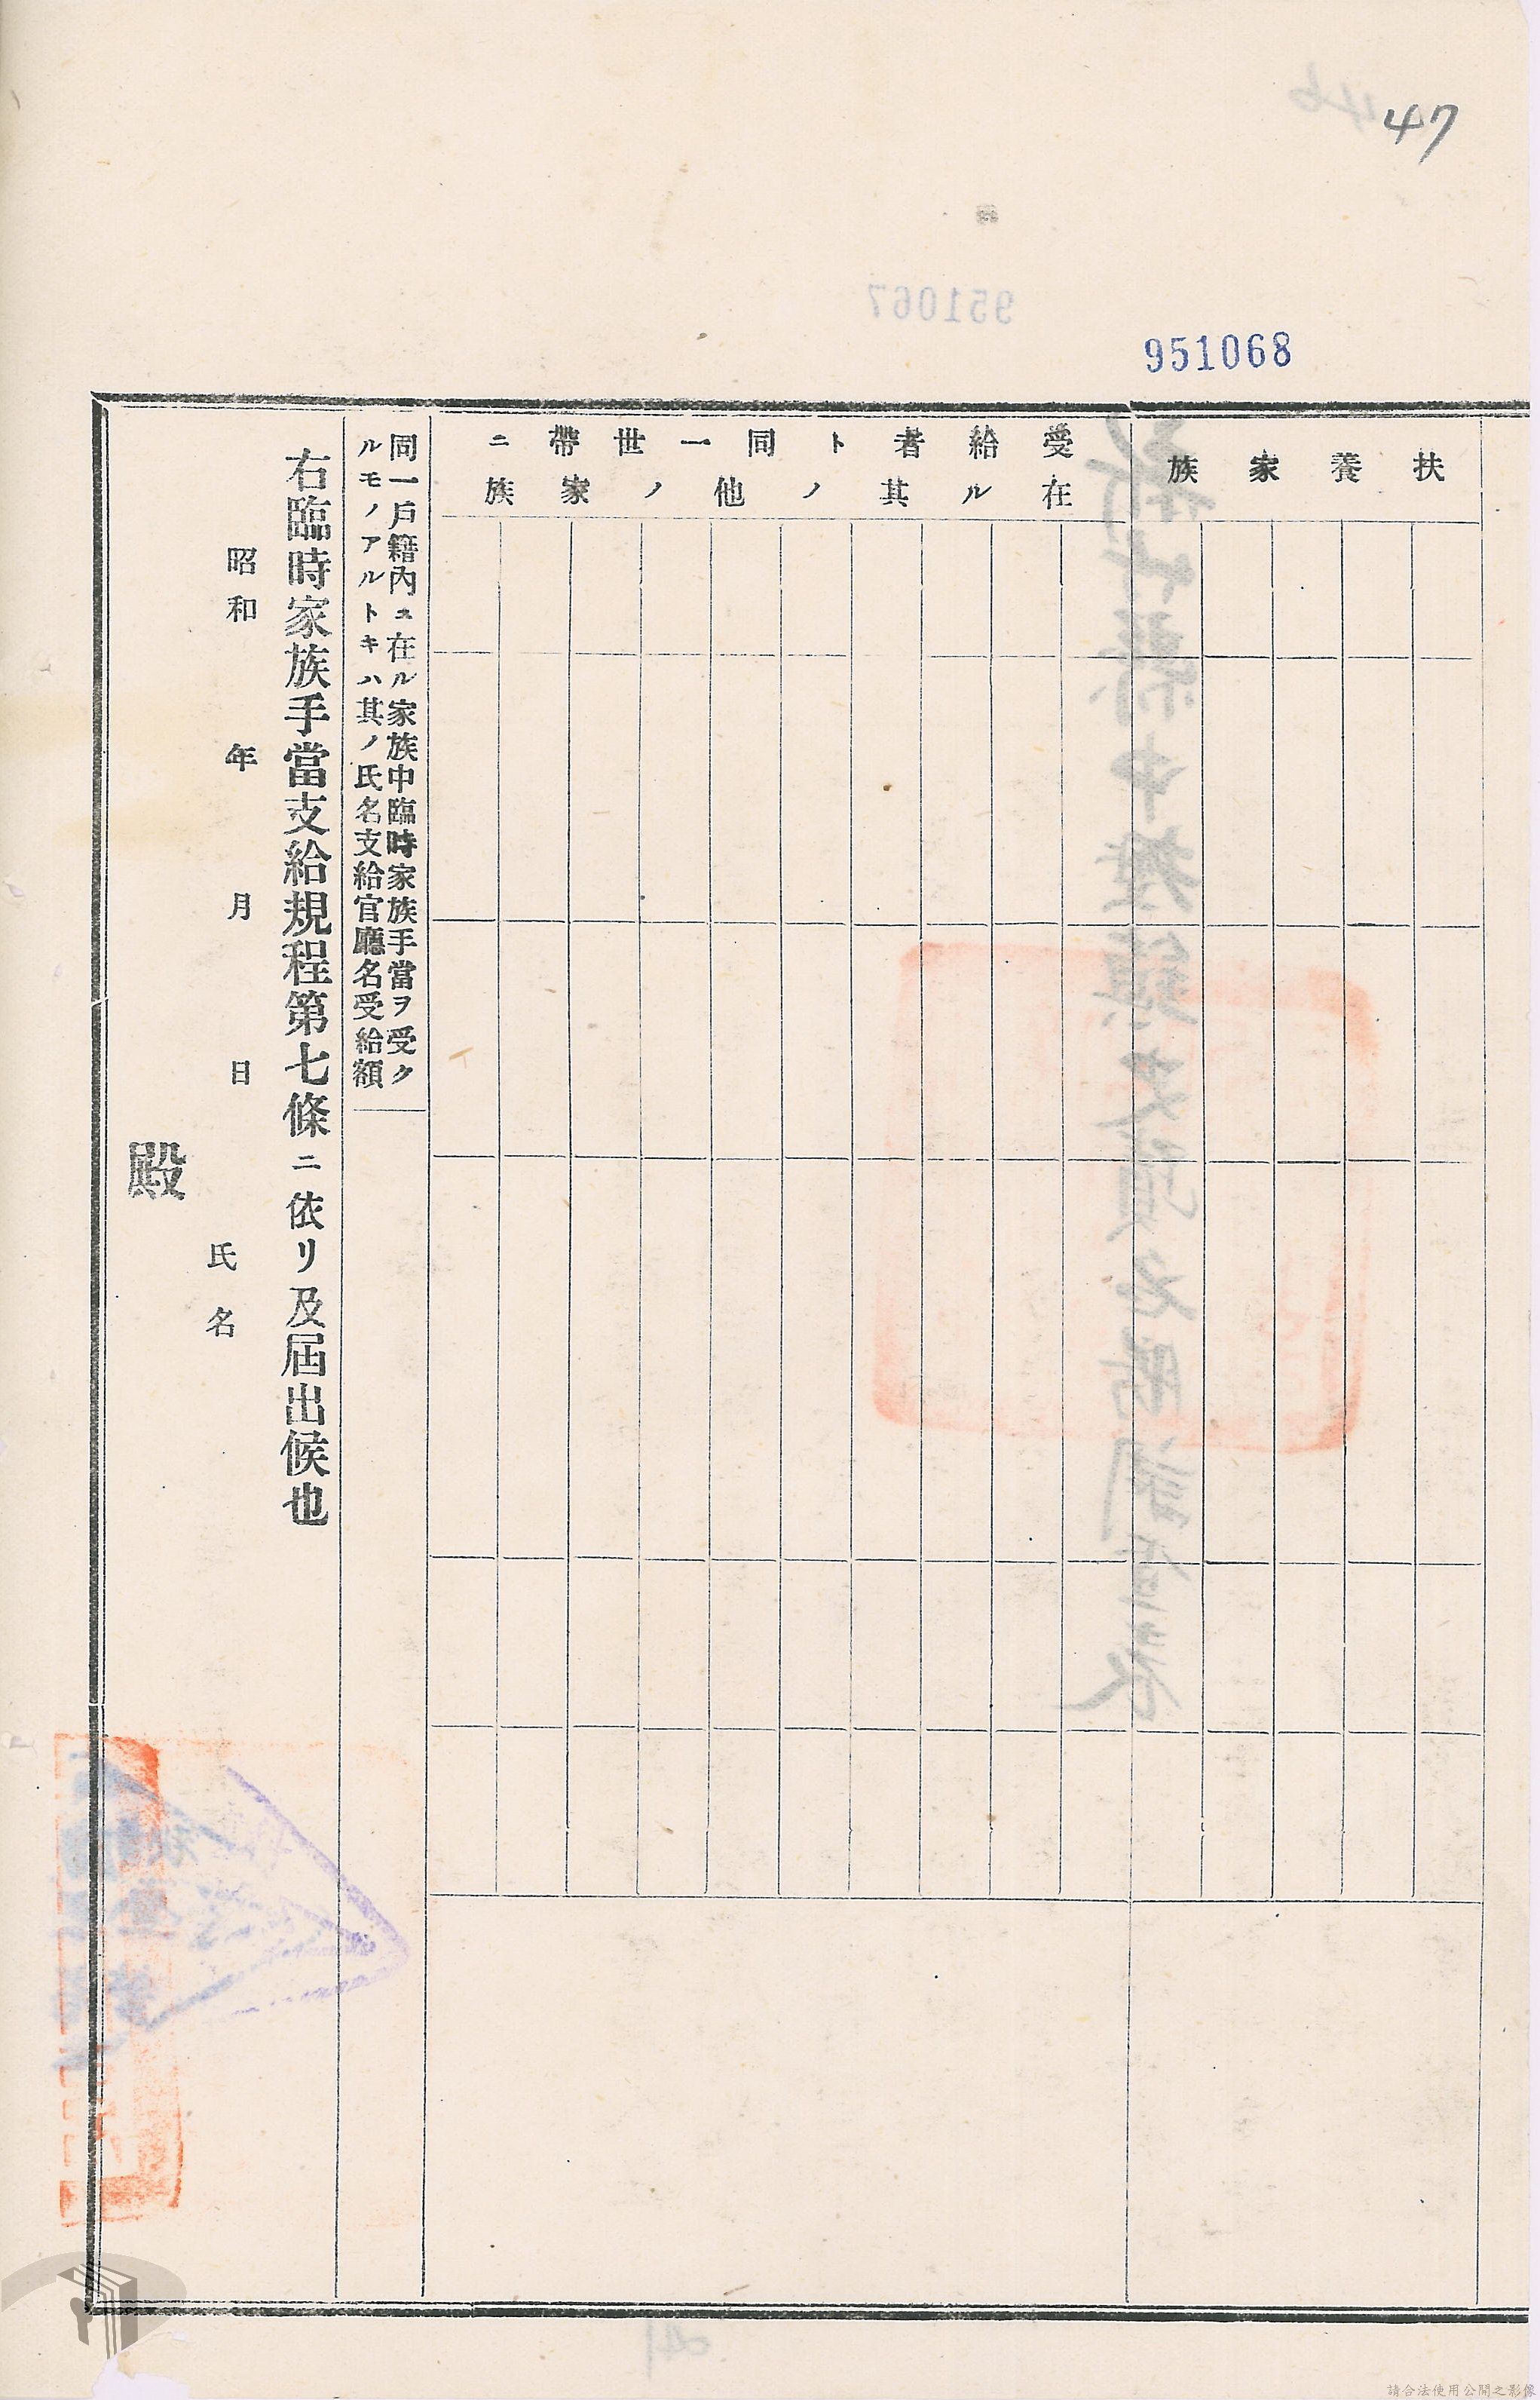 47
951068
扶養家族
受給者ト同一世帶ニ
在ル其ノ他ノ家族
同一戶籍內ニ在ル家族中臨時家族手當ヲ受ク
ルモノアルトキハ其ノ氏名支給官廳名受給額
右臨時家族手當支給規程第七條ニ依リ及屆出候也
昭和　年　月　日
氏名
殿
951067
46
新竹縣中壢鎮支項名勝調查表
請合法使用公開之影像